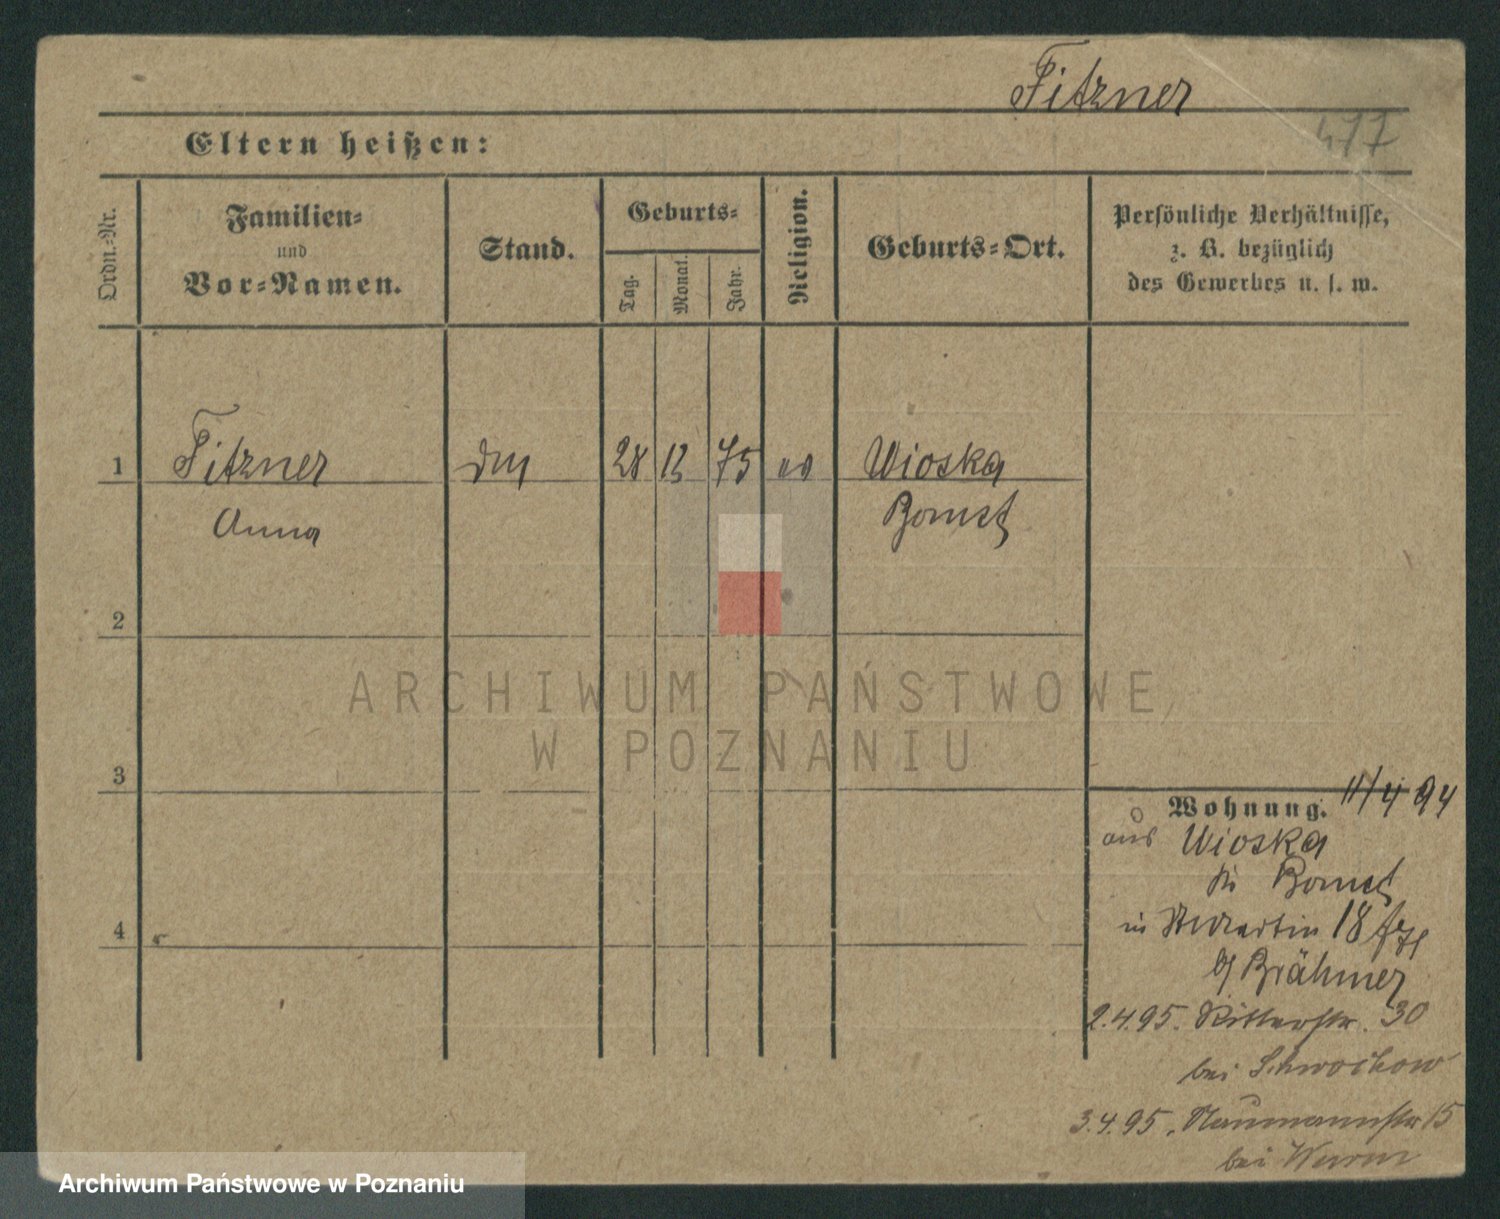 Fitzner
477
Eltern heißen:
Ordn.-Nr.
Familien-
und
Vor-Namen.
Stand.
Geburts-
Tag.
Monat.
Jahr.
Religion.
Geburts-Ort.
Persönliche Verhältnisse,
z. B. bezüglich
des Gewerbes u. s. w.
1 Fitzner 28 12 75 Wioska
Anna Bomst
2
ARCHIWUM PAŃSTWOWE
W POZNANIU
3
Wohnung. 11/4 94
aus Wioska
Bomst
4
in St Martin 18
Brähmer
2.4.95. Ritterstr. 30
bei
3.4.95. Naumannstr 15
bei Wurm
Archiwum Państwowe w Poznaniu